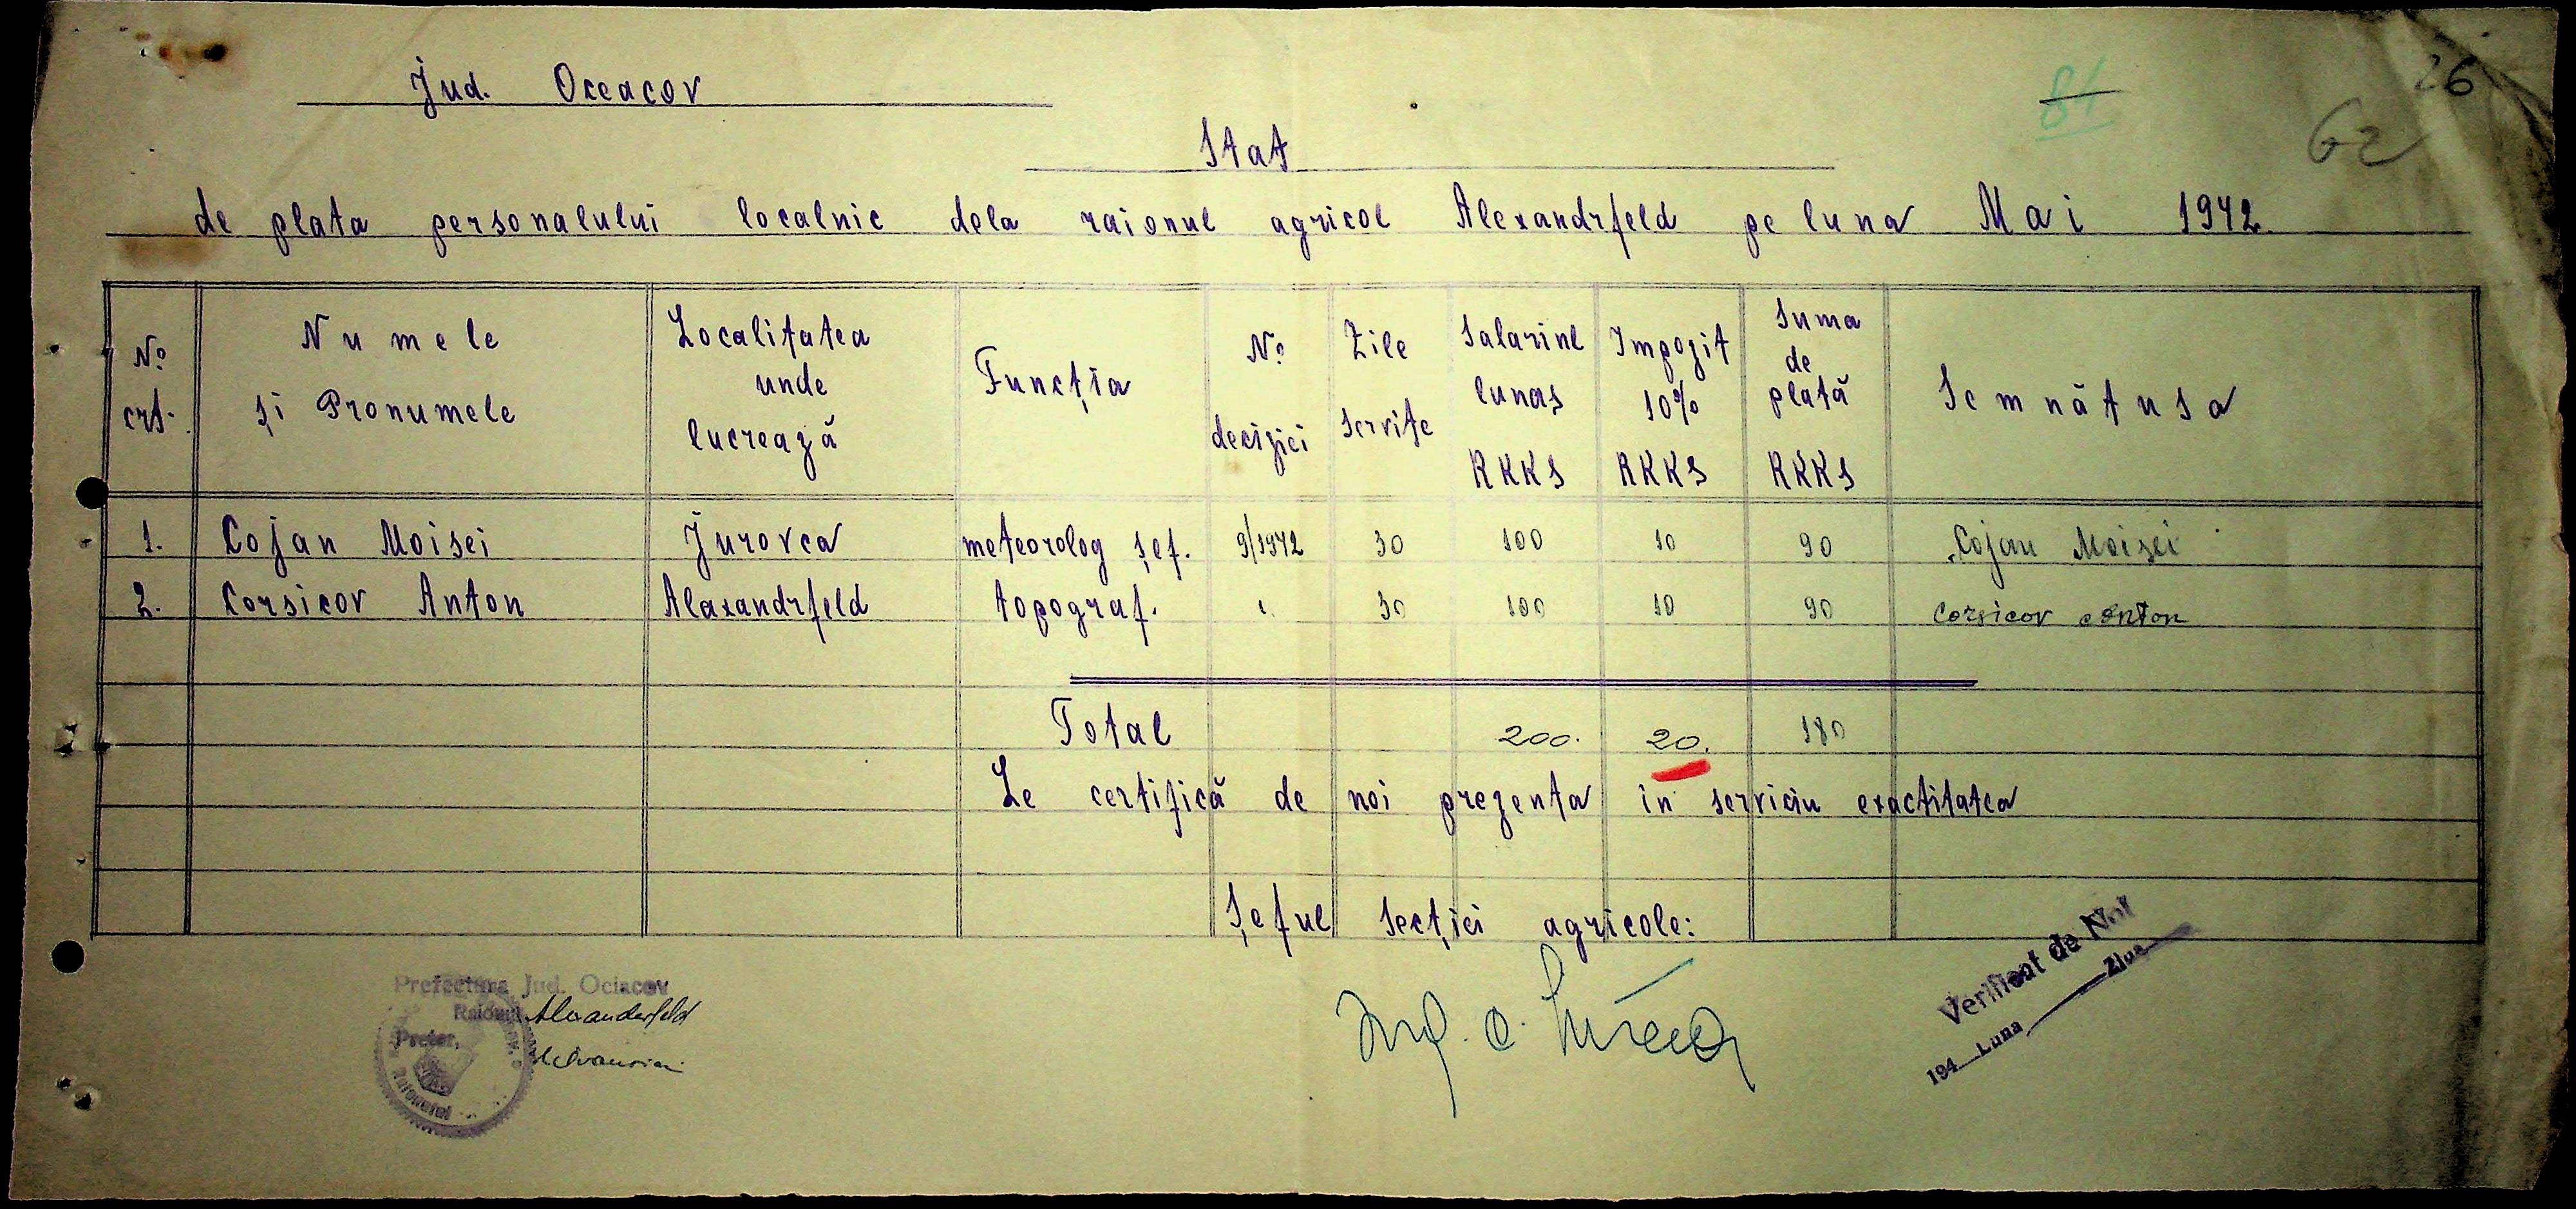 26
81
62
Jud. Oceacov
Stat
de plata personalului localnic dela raionul agricol Alexandrfeld pe luna Mai 1942
No. crt. | Numele și Pronumele | Localitatea unde lucrează | Funcția | No. deciziei | Zile servite | Salariul lunar RKKS | Impozit 10% RKKS | Suma de plată RKKS | Semnătura
1. | Cojan Moisei | Jurovca | meteorolog șef. | 9/1942 | 30 | 100 | 10 | 90 | Cojan Moisei
2. | Corsicov Anton | Alaxandrfeld | topograf. | 30 | 100 | 10 | 90 | Corsicov Anton
Total 200. 20. 180
Se certifică de noi prezenta in serviciu exactitatea
Șeful Secției agricole:
Prefectura Jud. Ociacov
Raionul Alexanderfeld
Pretor,
Ing. C.
Verificat de Noi
194 Luna Ziua